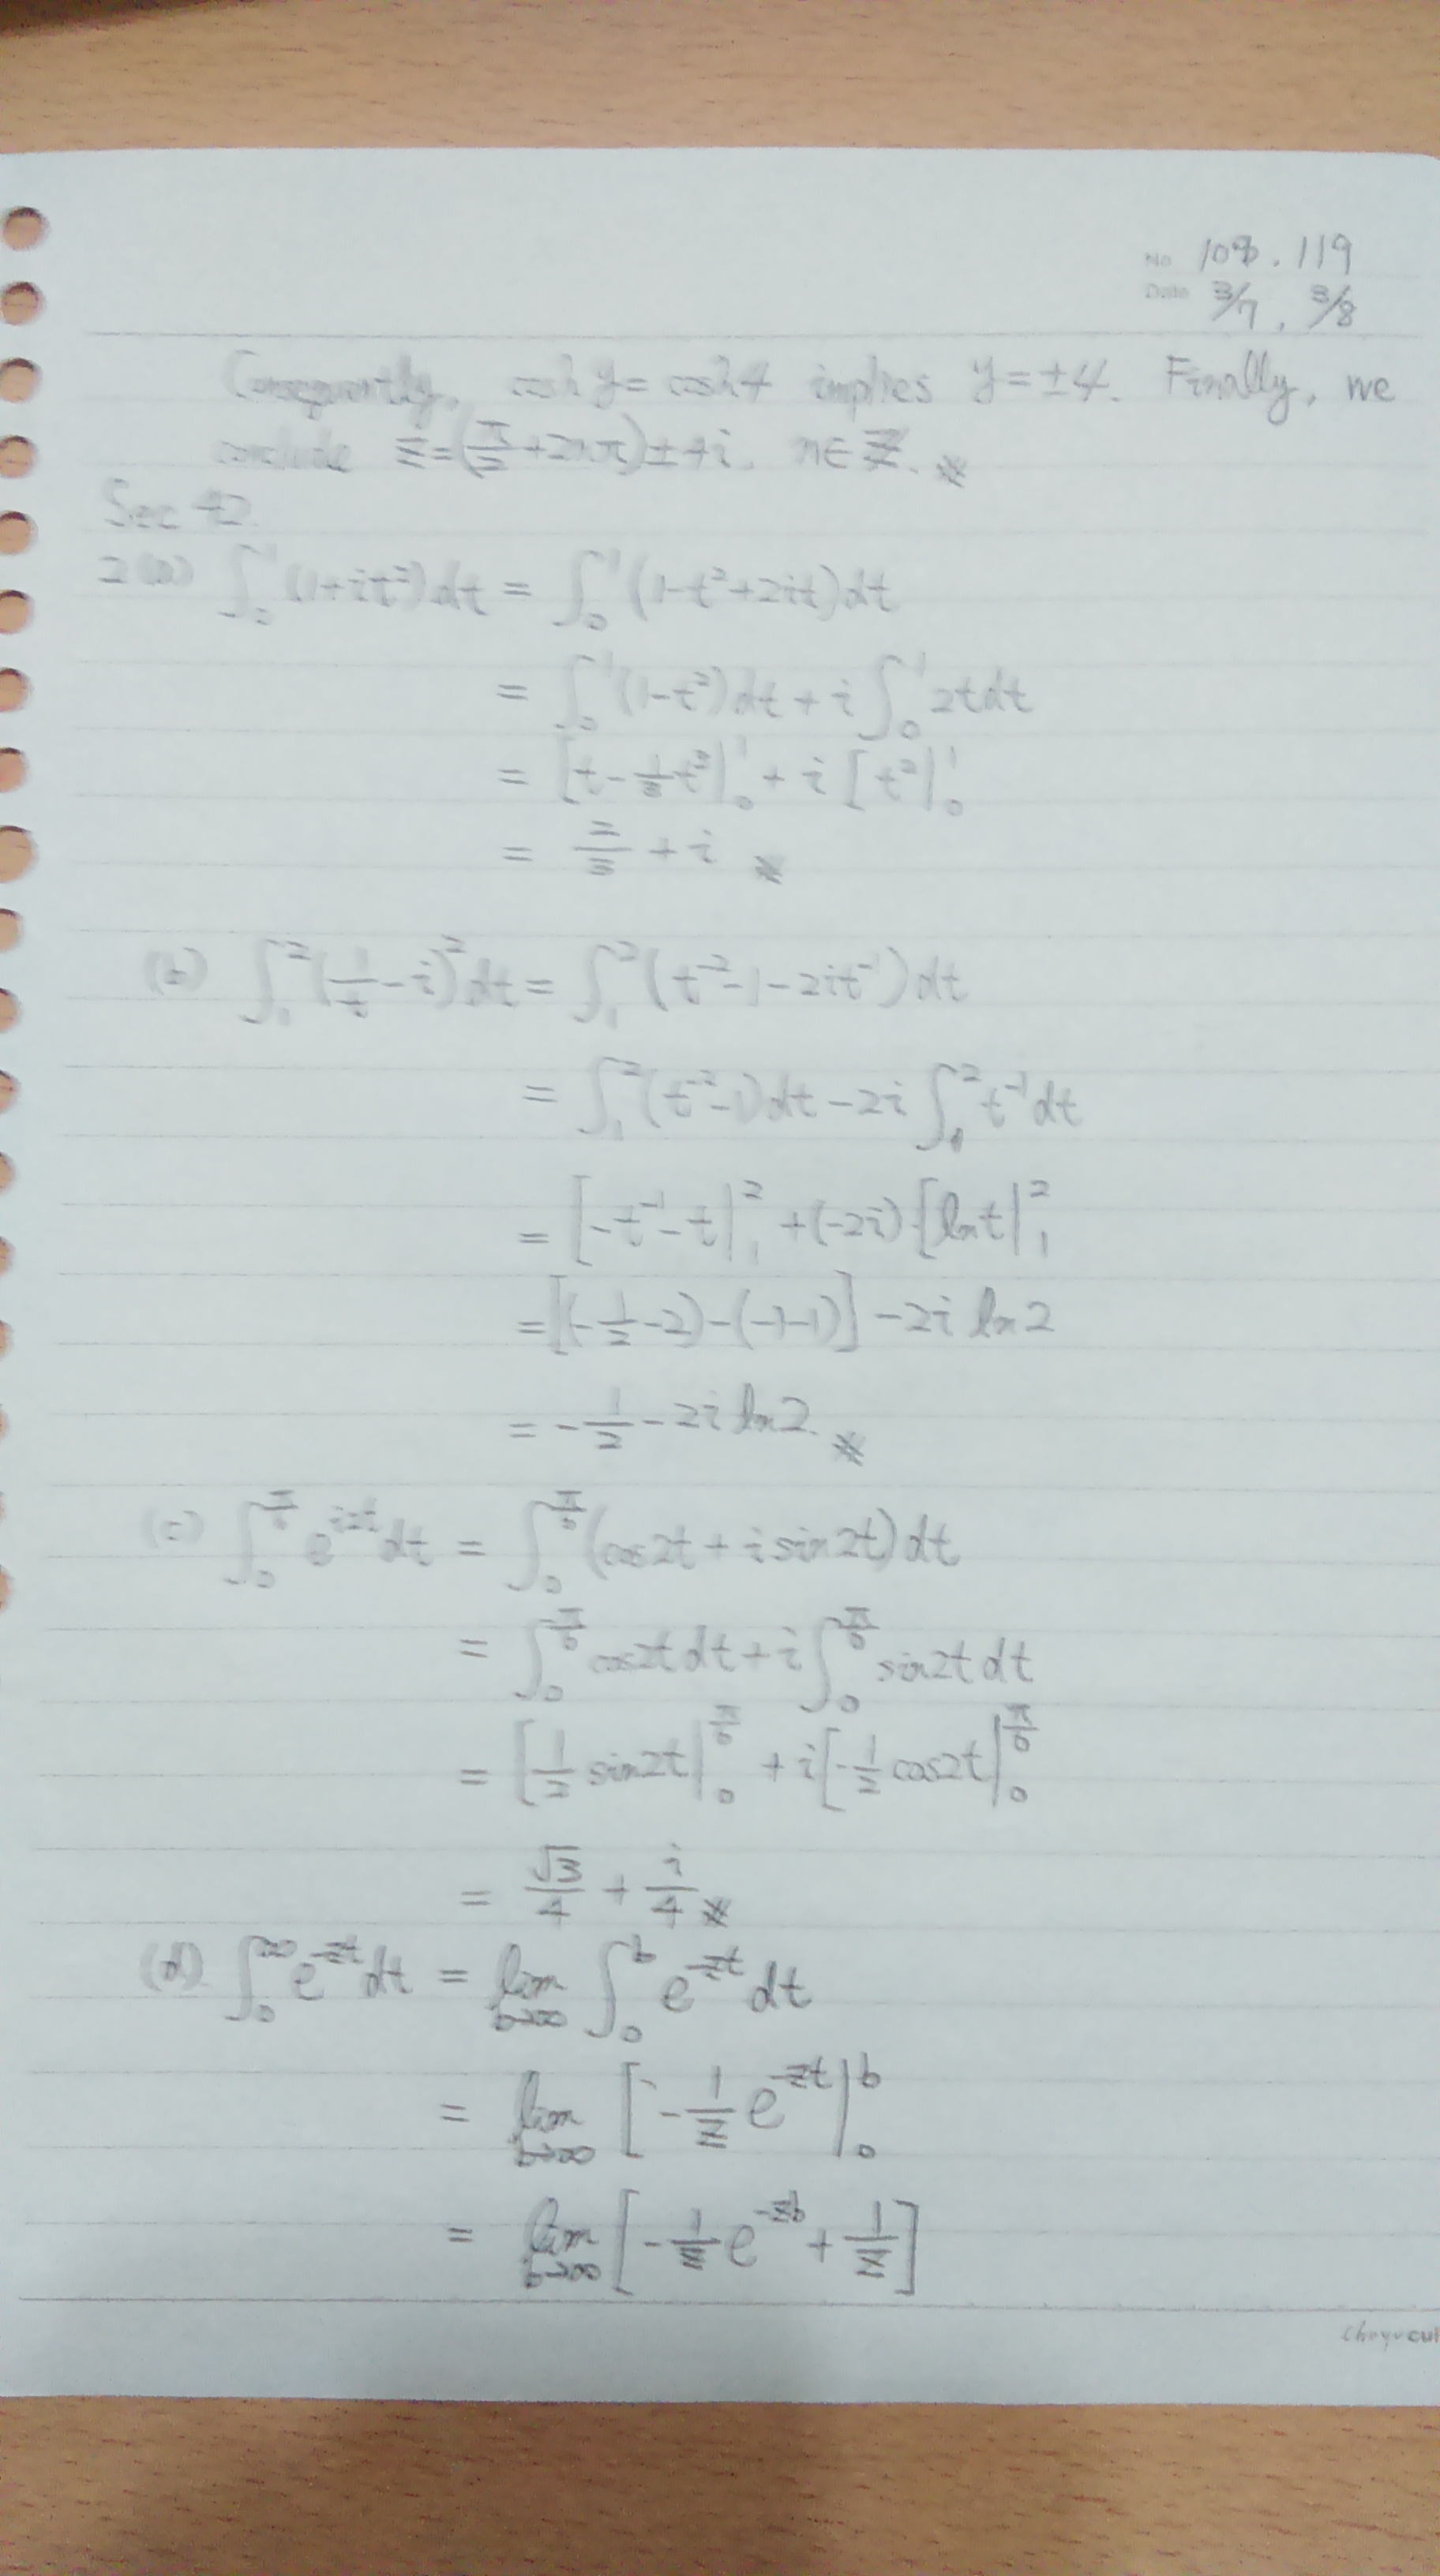 No. 108, 119
Date 3/7, 3/8
Consequently, cosh y = cosh 4 implies y = ±4. Finally, we
conclude z = (π/2 + 2nπ) ± 4i, n ∈ Z. ※
Sec 42
2 (a) ∫₀¹ (1+it²) dt = ∫₀¹ (1-t²+2it) dt
= ∫₀¹ (1-t²) dt + i ∫₀¹ 2t dt
= [t - 1/3 t³|₀¹ + i [t²|₀¹
= 2/3 + i ※
(b) ∫₁² (1/t - i)² dt = ∫₁² (t⁻² - 1 - 2it⁻¹) dt
= ∫₁² (t⁻² - 1) dt - 2i ∫₁² t⁻¹ dt
= [-t⁻¹ - t|₁² + (-2i) [ln t|₁²
= [(-1/2 - 2) - (-1-1)] - 2i ln 2
= -1/2 - 2i ln 2. ※
(c) ∫₀^(π/6) e^(i2t) dt = ∫₀^(π/6) (cos2t + i sin2t) dt
= ∫₀^(π/6) cos2t dt + i ∫₀^(π/6) sin2t dt
= [1/2 sin2t|₀^(π/6) + i [-1/2 cos2t|₀^(π/6)
= √3/4 + i/4 ※
(d) ∫₀^∞ e^(-zt) dt = lim b→∞ ∫₀^b e^(-zt) dt
= lim b→∞ [-1/z e^(-zt)|₀^b
= lim b→∞ [-1/z e^(-zb) + 1/z]